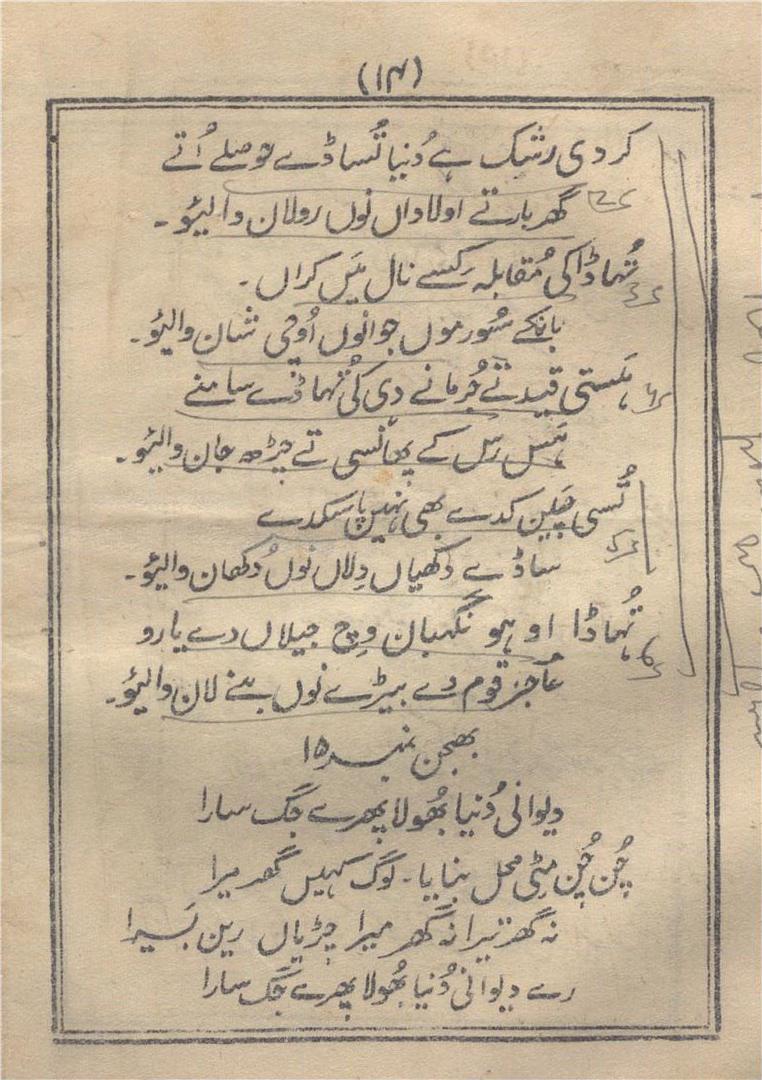 (۱۴)
کردی رشک ہے دُنیا تُساڈے حوصلے اُتے
گھر بار تے اولاداں نوں رولان والیئو۔
تُہاڈا کی مُقابلہ کِسے نال مَیں کراں۔
بانکے سُورموں جوانوں اُوچی شان والیئو۔
ہَستی قید تے جُرمانے دی کی تُہاڈے سامنے
ہَس ہَس کے پھانسی تے چڑھ جان والیئو۔
تُسی چَین کدے بھی نہیں پا سکدے
ساڈے دُکھیاں دِلاں نوں دُکھان والیئو۔
تُہاڈا اوہو نگہبان وِچ جیلاں دے یارو
عاجز قوم دے بیڑے نوں بنے لان والیئو۔
بھجن نمبر ۱۵
دیوانی دُنیا بھُولا پھرے جگ سارا
چُن چُن مٹی محل بنایا۔ لوگ کہیں گھر میرا
نہ گھر تیرا نہ گھر میرا چڑیاں رین بَسیرا
رے دیوانی دُنیا بھُولا پھرے جگ سارا